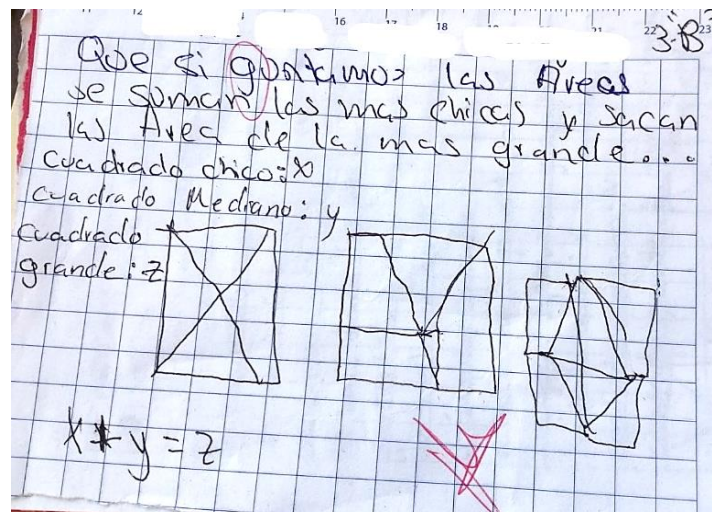 11 12 16 17 18 19 21 22 23
3-B
Que si guntamos las Áreas
se suman las mas chicas y sacan
las Área de la mas grande...
cuadrado chico: x
cuadrado Mediano: y
cuadrado
grande: z
x + y = z